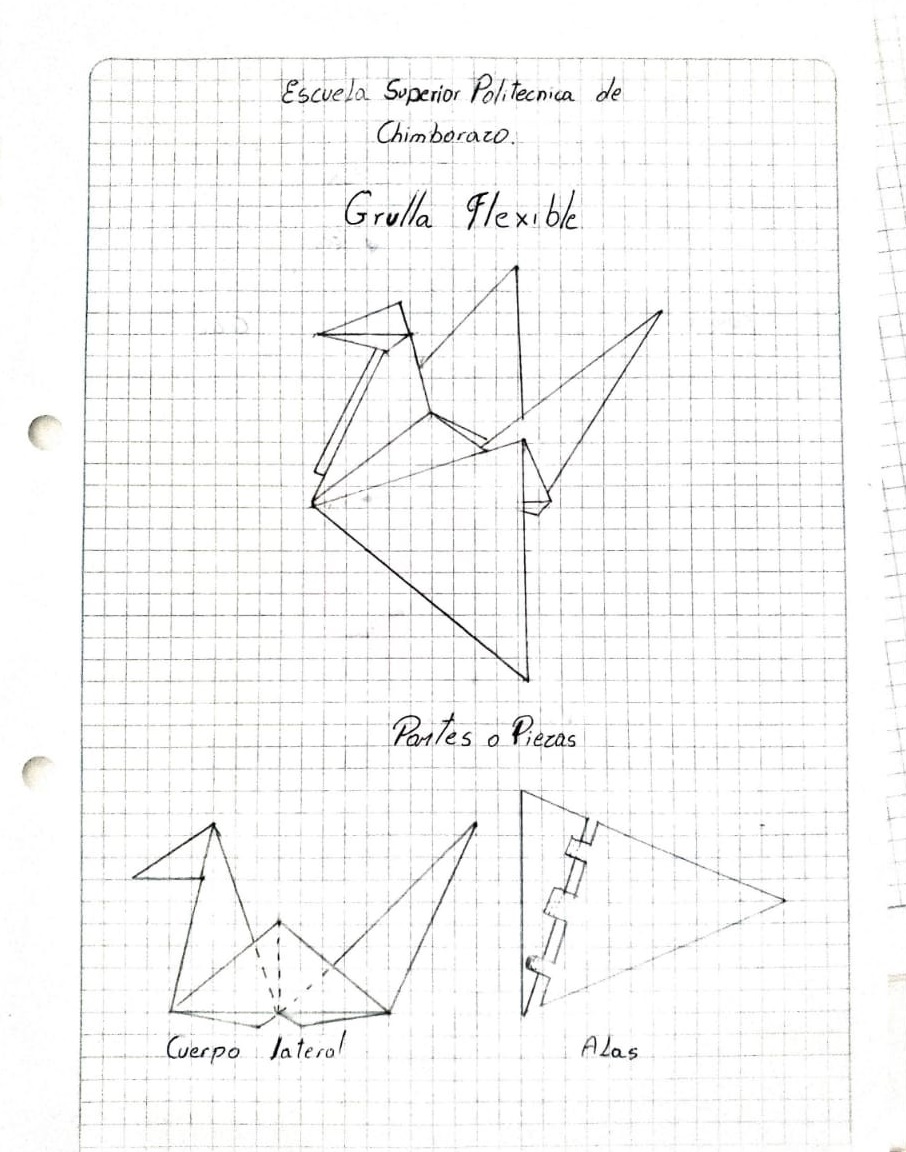 Escuela Superior Politecnica de
Chimborazo.
Grulla Flexible
Partes o Piezas
Cuerpo lateral
Alas